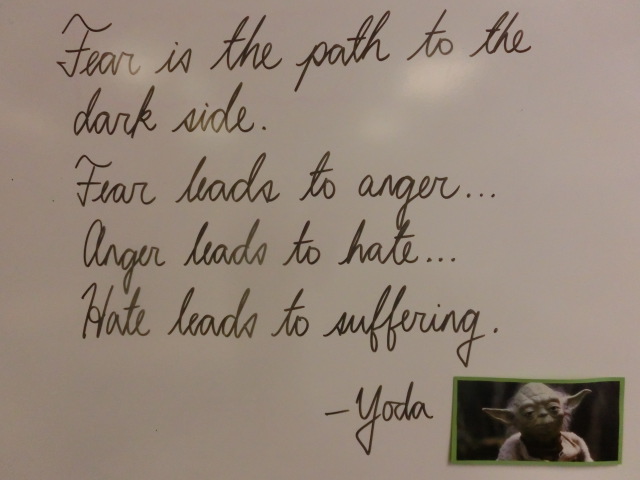 Fear is the path to the
dark side.
Fear leads to anger...
Anger leads to hate...
Hate leads to suffering.
—Yoda